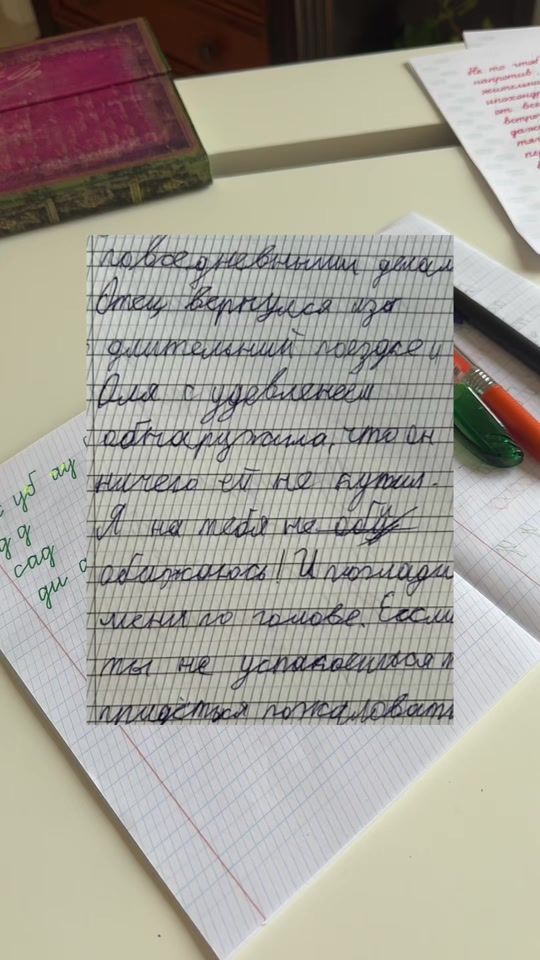 повседневныими делам
Отец вернулся изз
длительний поездке и
Оля с удевленеем
обнаружила, что он
ничего ей не купил.
Я на тебя не обу
обажаюсь! И поглади
меня по голове. Если
ты не успакоешься п
придётся пожаловать
Не то чтоб
напротив
жительна
ипохондр
от все
встре
даж
тяг
пе
уб ау
сад
ди